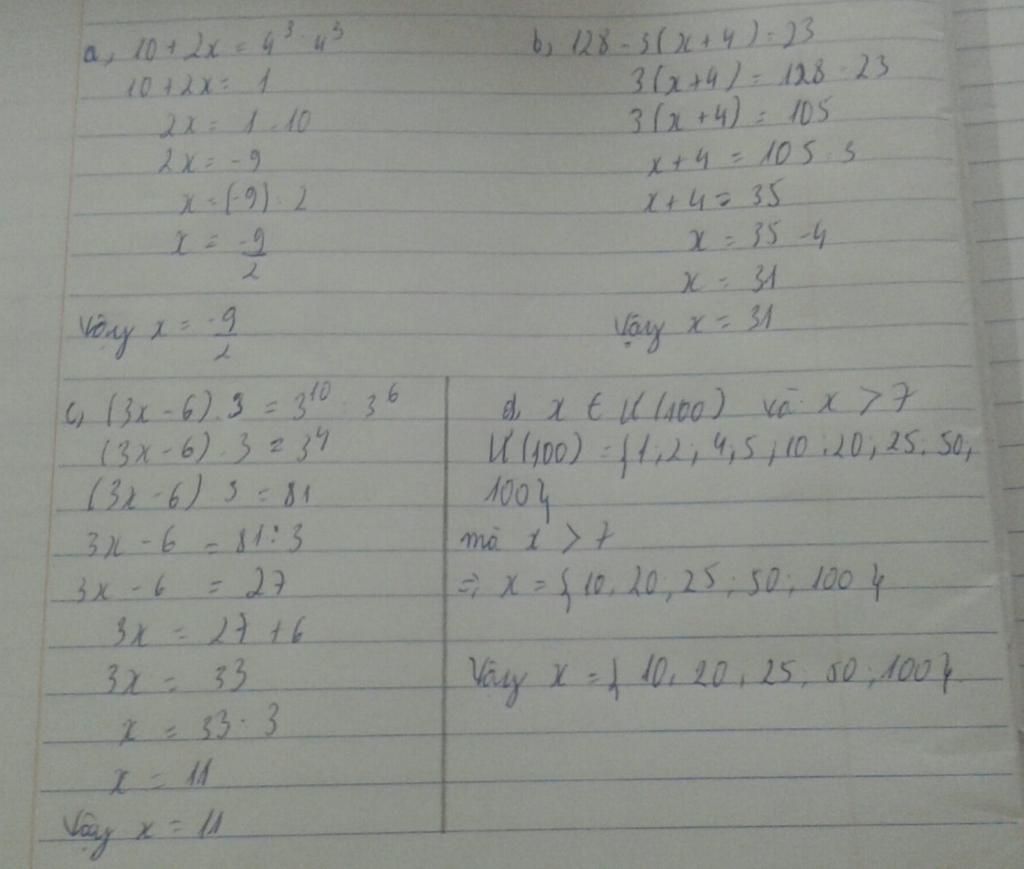 a, 10 + 2x = 4³ : 4³
10 + 2x = 1
2x = 1 - 10
2x = -9
x = (-9) : 2
x = -9/2
Vậy x = -9/2
b, 128 - 3(x+4) = 23
3(x+4) = 128 - 23
3(x+4) = 105
x+4 = 105 : 3
x+4 = 35
x = 35 - 4
x = 31
Vậy x = 31
c, (3x - 6) . 3 = 3¹⁰ : 3⁶
(3x - 6) . 3 = 3⁴
(3x - 6) . 3 = 81
3x - 6 = 81 : 3
3x - 6 = 27
3x = 27 + 6
3x = 33
x = 33 : 3
x = 11
Vậy x = 11
d, x ∈ Ư(100) và x > 7
Ư(100) = {1; 2; 4; 5; 10; 20; 25; 50;
100}
mà x > 7
=> x = {10; 20; 25; 50; 100}
Vậy x = {10; 20; 25; 50; 100}